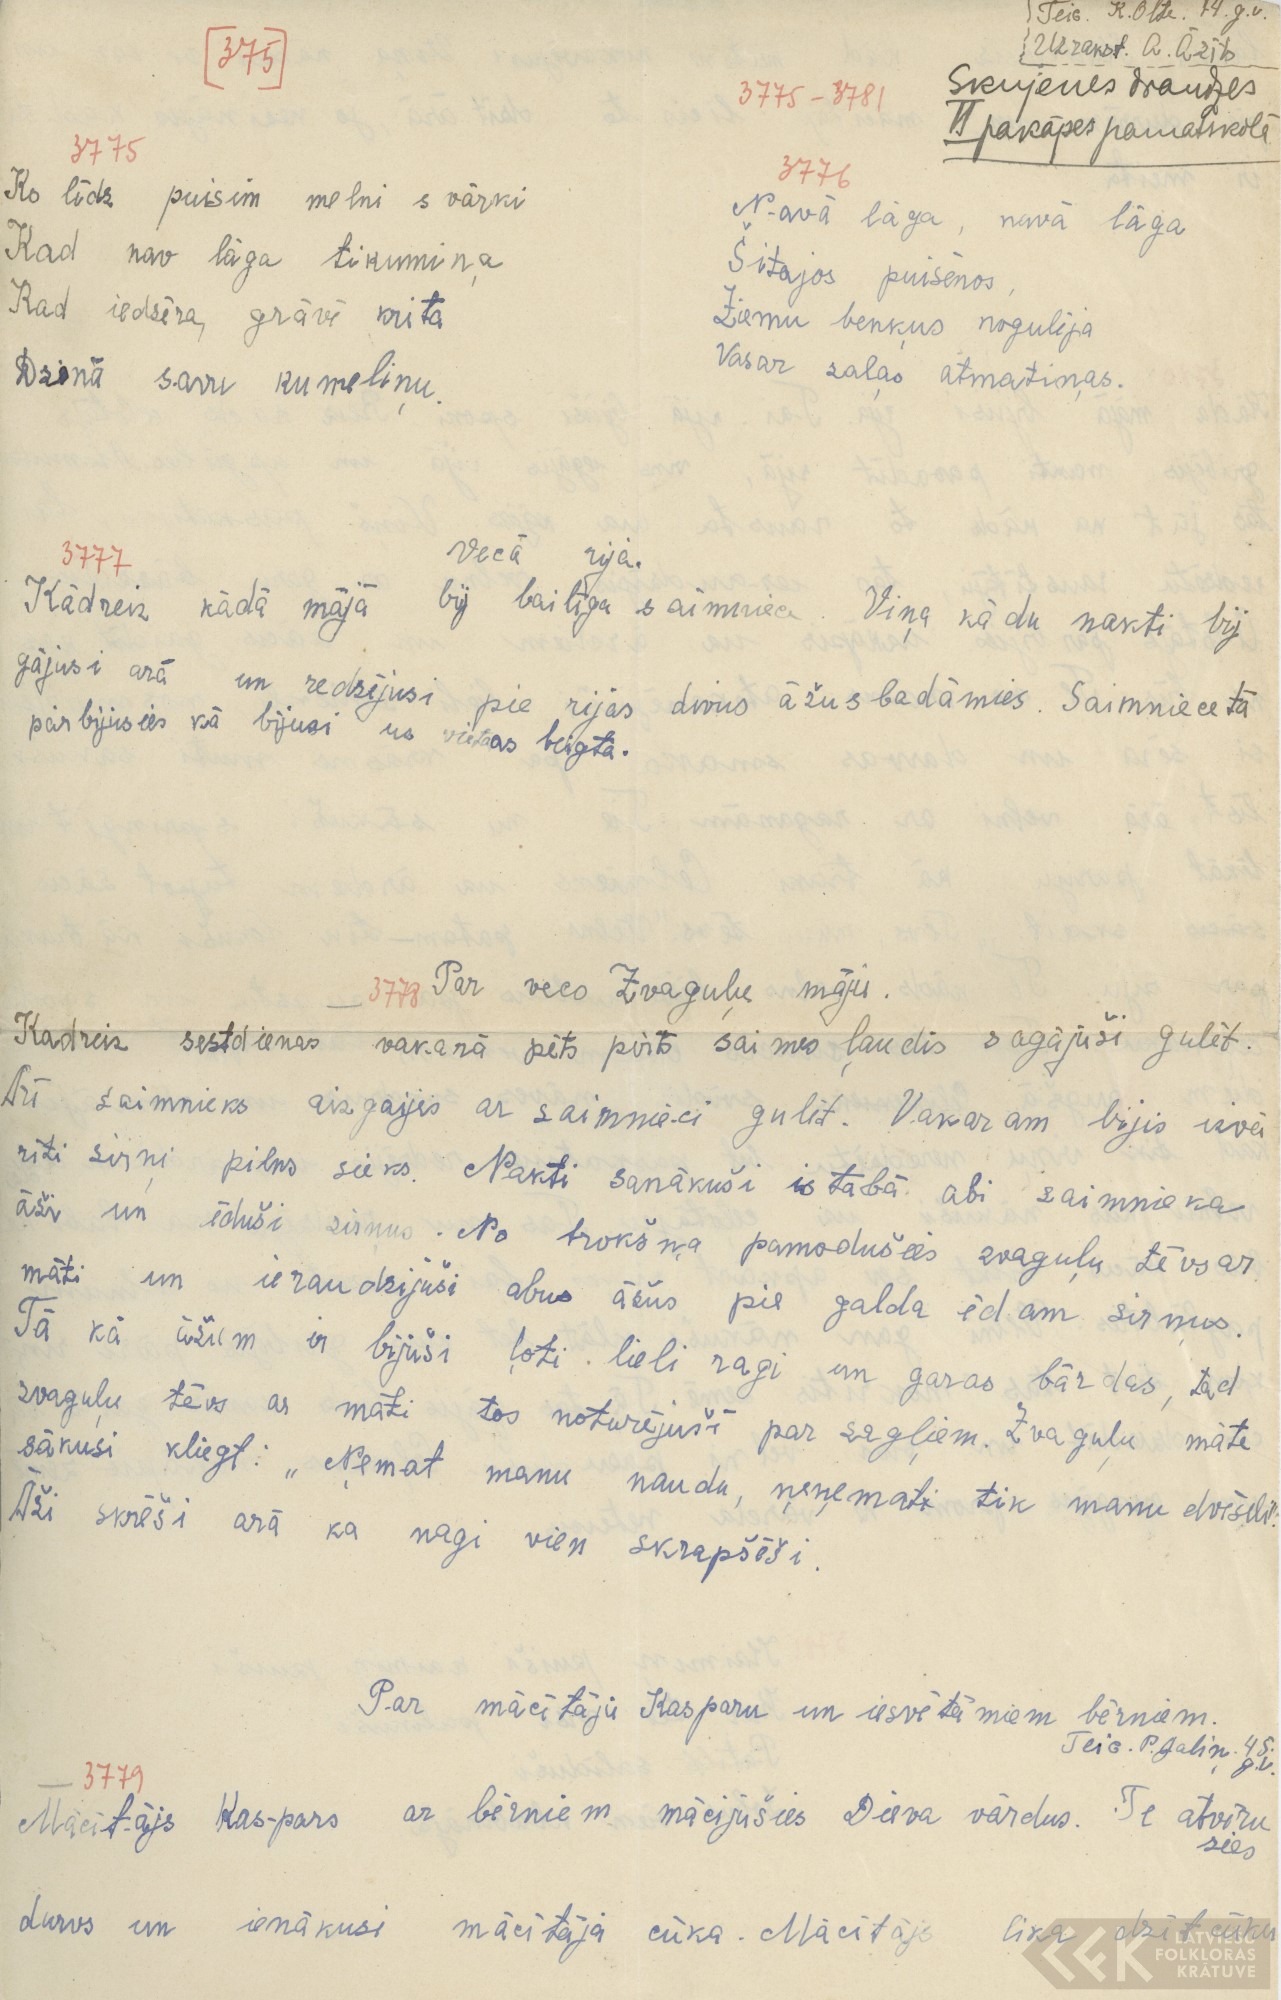 [375]
Teic. K. Olte. 74. g.v.
Uzrakst. A. Āzīts
3775-3781
Skujenes draudzes
II pakāpes pamatskolā
3775
Ko līdz puisim melni svārki
Kad nav lāga tikumiņa
Kad iedzēra, grāvē krita
Dzinā savu kumeliņu.
3776
Navā lāga, navā lāga
Šitajos puisēnos,
Ziemu beņķus nogulēja
Vasar zaļas atmatiņas.
3777
Vecā rija.
Kādreiz kādā mājā bij bailīga saimniece. Viņa kādu nakti bij
gājusi arā un redzējusi pie rijas divus āžus badāmies. Saimniece tā
pārbijusies kā bijusi us vietas beigta.
3778 Par veco Zvaguļu māju.
Kadreiz sestdienas vakarā pēts pirts saimes ļaudis sagājuši gulēt.
Arī saimnieks aizgājis ar saimnieci gulēt. Vakaram bijis izvā
rīti sirņi pilns sieks. Nakti sanākuši istabā abi saimnieka
āži un ēduši sirņus. No trokšņa pamodušies zvaguļu tēvs ar
māti un ieraudzijuši abus āžus pie galda ēdam sirņus.
Tā kā āžiem ir bijuši ļoti lieli ragi un garas bārdas, tad
zvaguļu tēvs ar māti tos noturējuši par zagļiem. Zvaguļu māte
sākusi kliegt: „Ņemat manu naudu, ņeņemati tik manu dvēseli:
Āži skrēši arā ka nagi vien skrapšēši.
Par mācītāju Kasparu un iesvētāmiem bērniem.
Teic. P. Galiņ. 45.
g.v.
3779
Mācītājs Kaspars ar bērniem mācijušies Dieva vārdus. Te atvēru
sies
durvs un ienākusi mācītāja cūka. Mācītājs lika dzīt cūku
LATVIEŠU
FOLKLORAS
KRĀTUVE